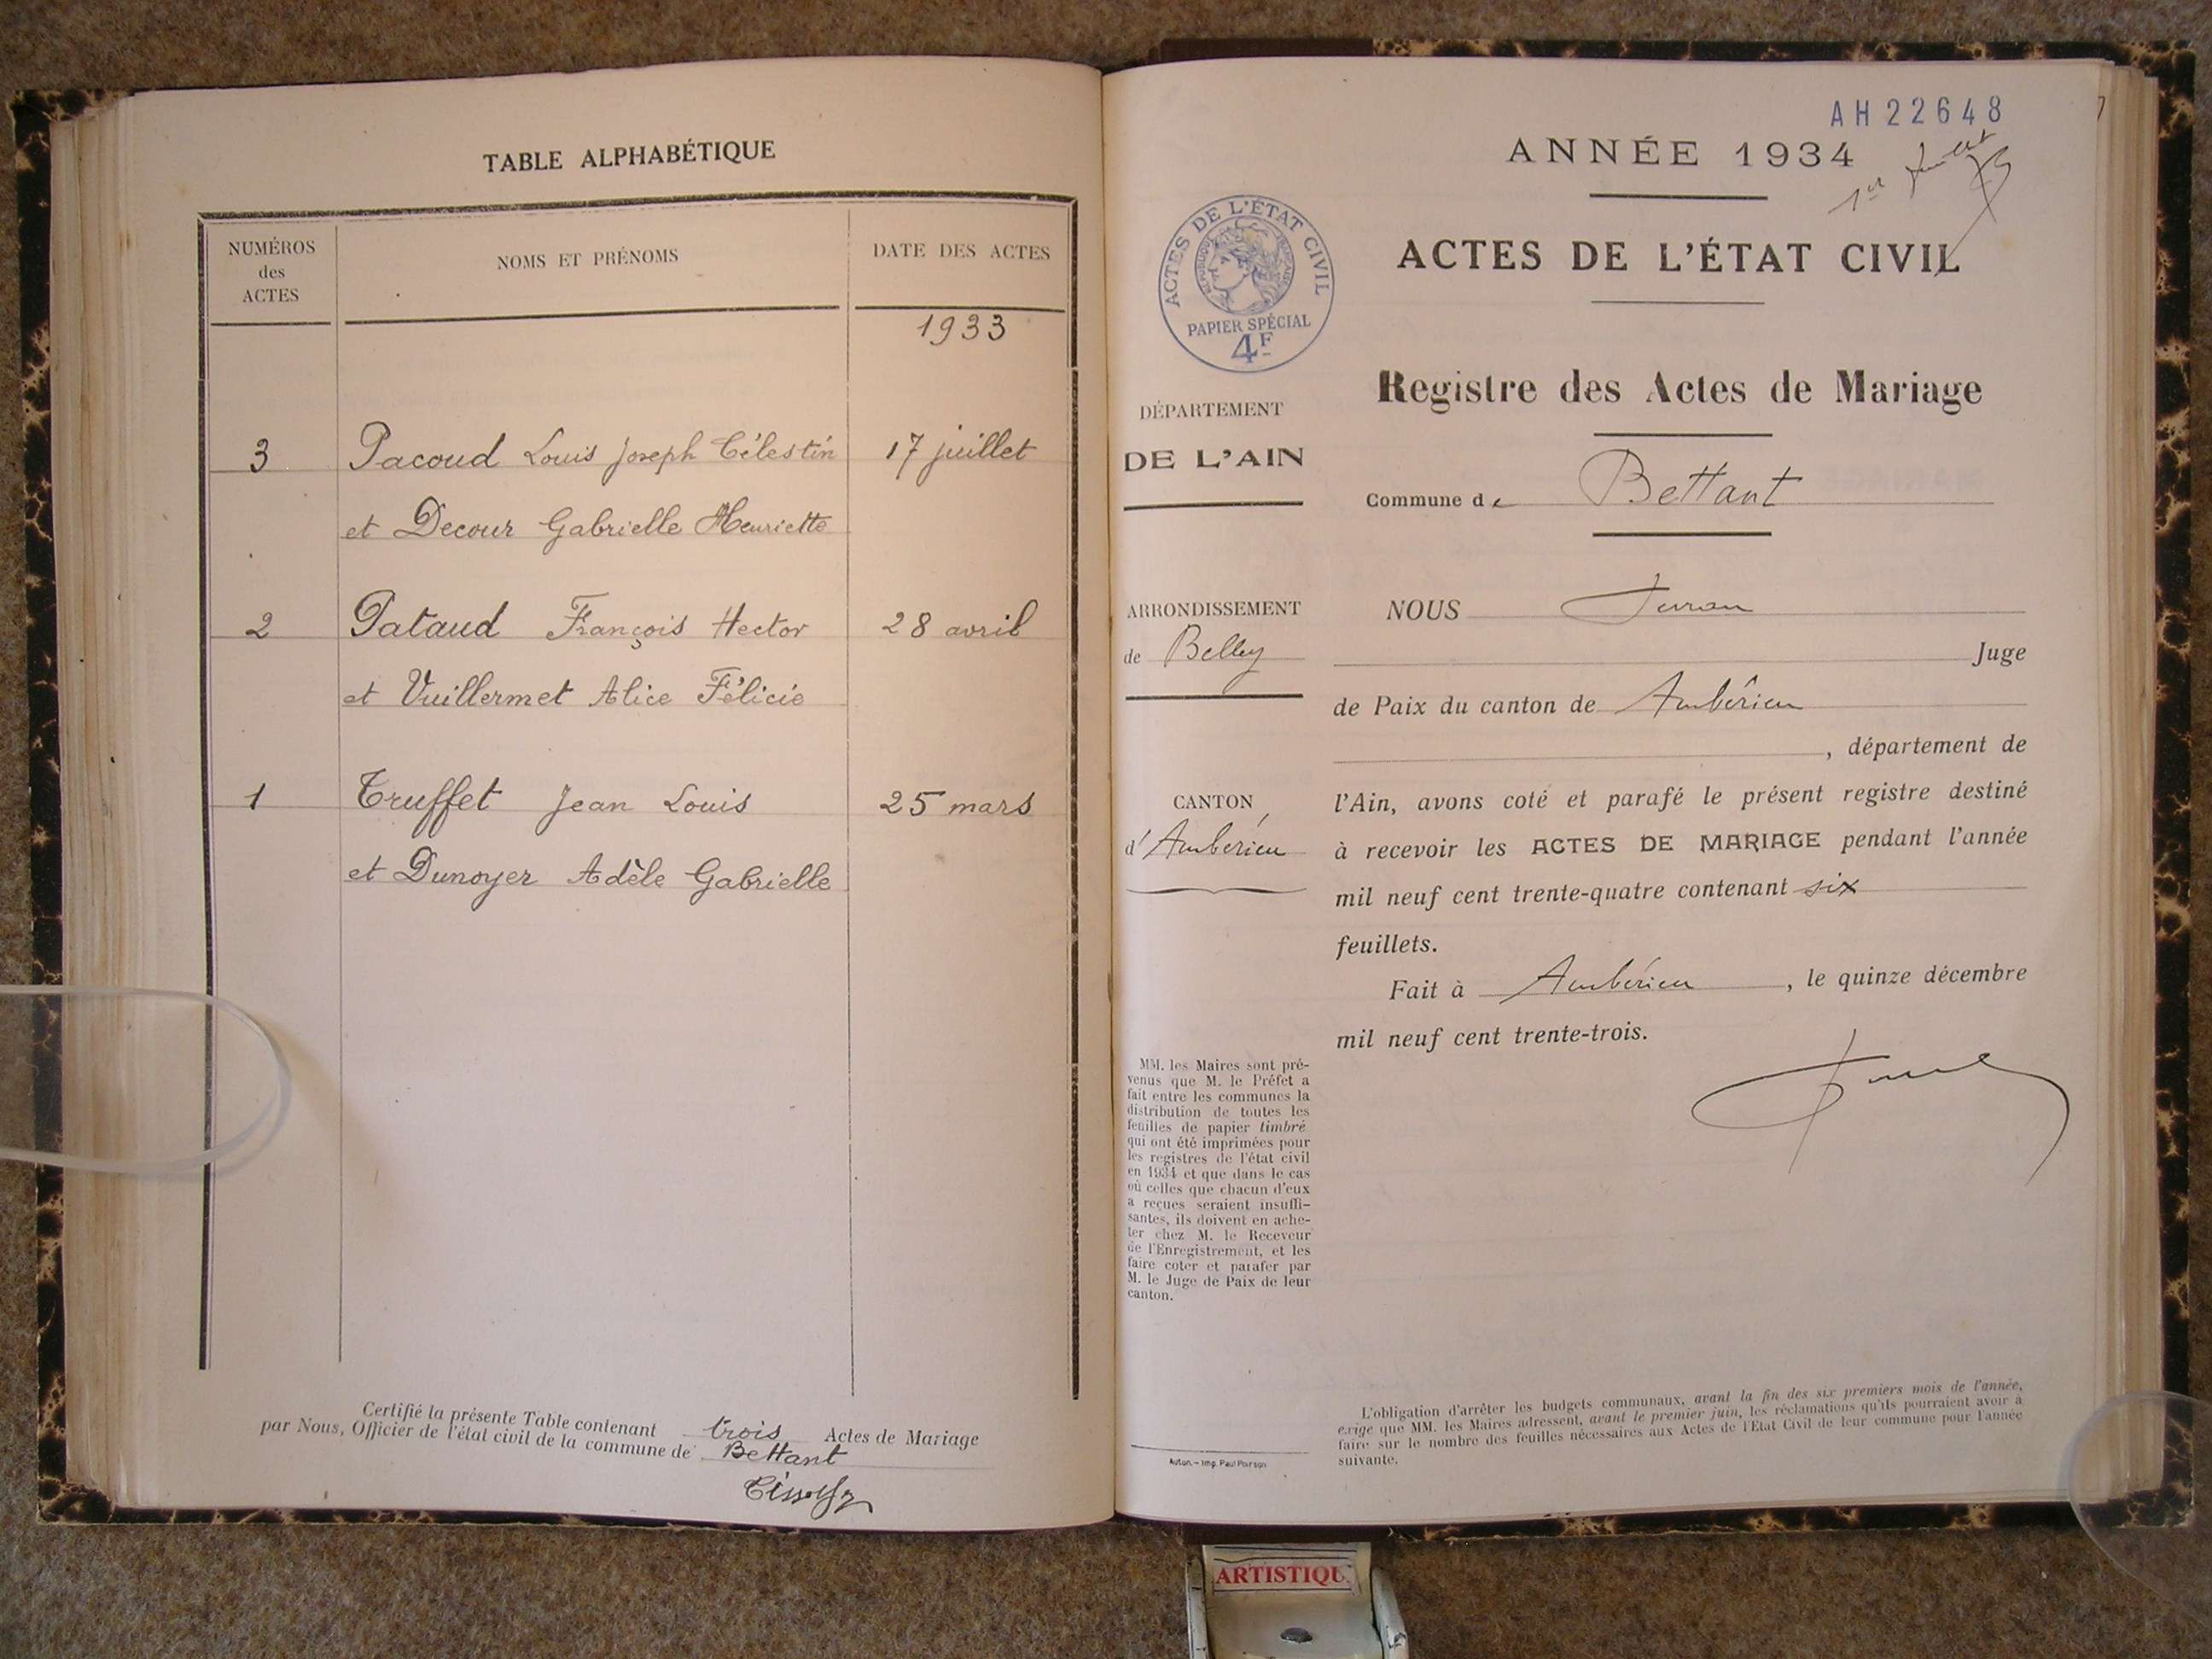 TABLE ALPHABÉTIQUE
NUMÉROS des ACTES
NOMS ET PRÉNOMS
DATE DES ACTES
1933
3 Pacoud Louis Joseph Célestin 17 juillet
et Decour Gabrielle Henriette
2 Pataud François Hector 28 avril
et Vuillermet Alice Félicie
1 Truffet Jean Louis 25 mars
et Dunoyer Adèle Gabrielle
Certifié la présente Table contenant trois Actes de Mariage
par Nous, Officier de l'état civil de la commune de Bettant
AH 22648
ANNÉE 1934
1er feuillet
ACTES DE L'ÉTAT CIVIL
ACTES DE L'ÉTAT CIVIL
RÉPUBLIQUE FRANÇAISE
PAPIER SPÉCIAL
4F
DÉPARTEMENT
DE L'AIN
ARRONDISSEMENT
de Belley
CANTON
d'Ambérieu
MM. les Maires sont pré-
venus que M. le Préfet a
fait entre les communes la
distribution de toutes les
feuilles de papier timbré
qui ont été imprimées pour
les registres de l'état civil
en 1934 et que dans le cas
où celles que chacun d'eux
a reçues seraient insuffi-
santes, ils doivent en ache-
ter chez M. le Receveur
de l'Enregistrement, et les
faire coter et parafer par
M. le Juge de Paix de leur
canton.
Autun. - Imp. Paul Poirson
Registre des Actes de Mariage
Commune de Bettant
NOUS
Juge
de Paix du canton de Ambérieu
, département de
l'Ain, avons coté et parafé le présent registre destiné
à recevoir les ACTES DE MARIAGE pendant l'année
mil neuf cent trente-quatre contenant six
feuillets.
Fait à Ambérieu, le quinze décembre
mil neuf cent trente-trois.
L'obligation d'arrêter les budgets communaux, avant la fin des six premiers mois de l'année,
exige que MM. les Maires adressent, avant le premier juin, les réclamations qu'ils pourraient avoir à
faire sur le nombre des feuilles nécessaires aux Actes de l'Etat Civil de leur commune pour l'année
suivante.
ARTISTIQU